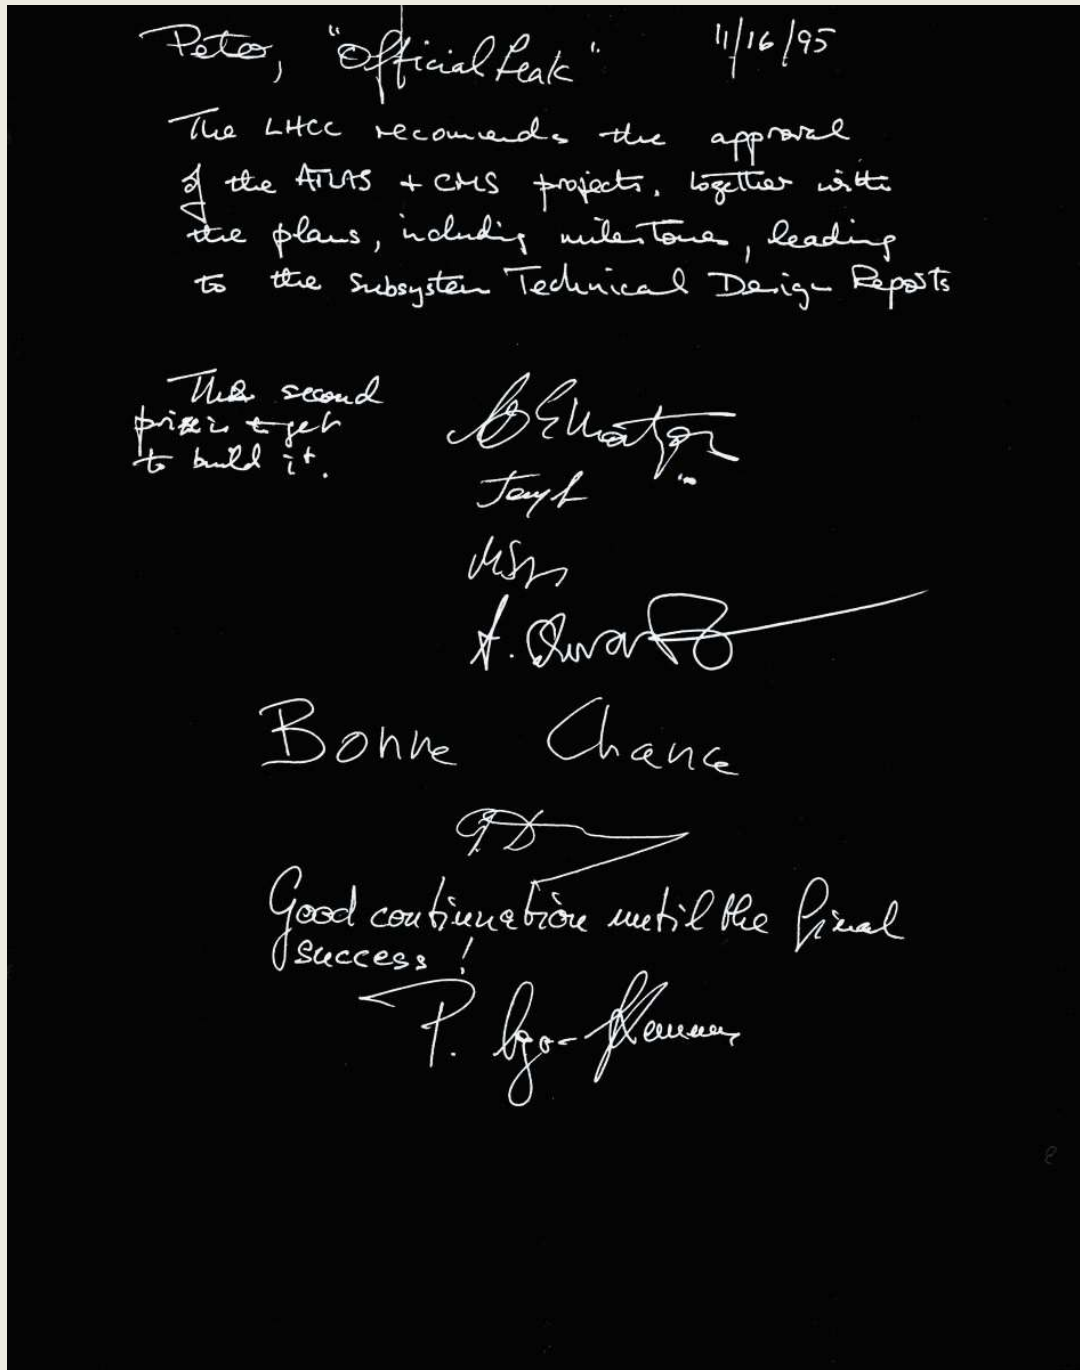 Peter, "Official Leak" 11/16/95
The LHCC recommends the approval
of the ATLAS + CMS projects, together with
the plans, including milestones, leading
to the Subsystem Technical Design Reports
The second
prize is to get
to build it.
Bonne Chance
Good continuation until the final
success!
P.